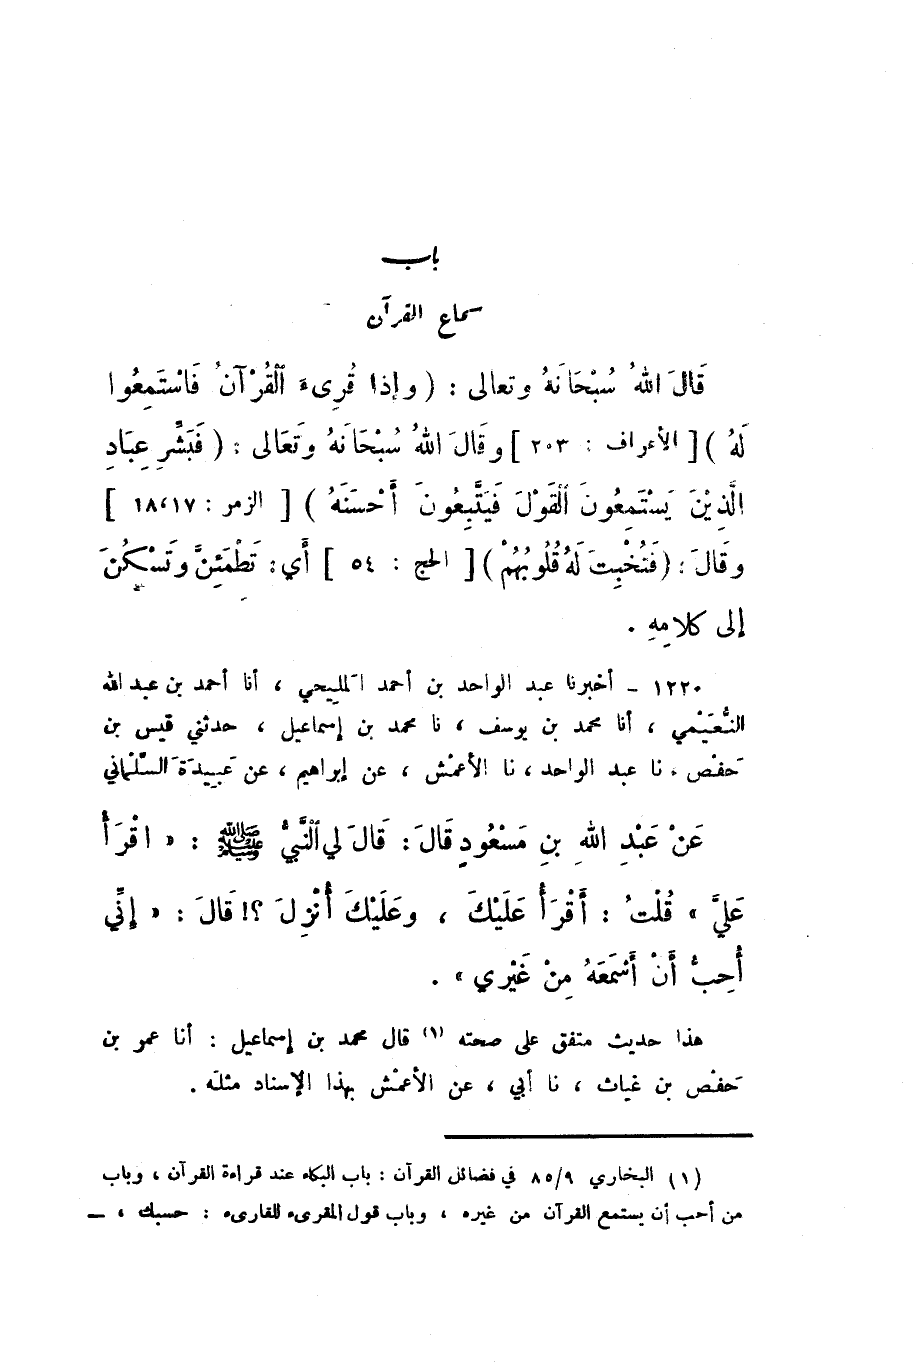 باب
سماع القرآن
قَالَ اللهُ سُبْحَانَهُ وتعالى : ( وإذا قُرِىءَ الْقُرْآنُ فَاسْتَمِعُوا
لَهُ ) [ الأعراف : ٢٠٣ ] وقَالَ اللهُ سُبْحَانَهُ وتَعَالى : ( فَبَشِّرِ عِبَادِ
الَّذِيْنَ يَسْتَمِعُونَ الْقَوْلَ فَيَتَّبِعُونَ أَحْسَنَهُ ) [ الزمر : ١٧،١٨ ]
وقَالَ : ( فَتُخْبِتَ لَهُ قُلُوبُهُمْ ) [ الحج : ٥٤ ] أَي: تَطْمَئِنَّ وتَسْكُنَ
إلى كلامِهِ .
١٢٢٠ – أخبرنا عبد الواحد بن أحمد المَلِيحي ، أنا أحمد بن عبد الله
النُّعَيْمي ، أنا محمد بن يوسف ، نا محمد بن إسماعيل ، حدثني قيس بن
حَفْص ، نا عبد الواحد ، نا الأعمَش ، عن إبراهيم ، عن عَبِيدَةَ السَّلْماني
عَنْ عَبْدِ اللهِ بنِ مَسْعُودٍ قَالَ : قَالَ لي النَّبيُّ ﷺ : « اقْرَأْ
عَلَيَّ » قُلْتُ : أَقْرَأُ عَلَيْكَ ، وعَلَيْكَ أُنْزِلَ ؟! قَالَ : « إنِّي
أُحِبُّ أَنْ أَسْمَعَهُ مِنْ غَيْرِي » .
هذا حديث متفق على صحته (١) قال محمد بن إسماعيل : أنا عمر بن
حَفْص بن غياث ، نا أبي ، عن الأعمَش بهذا الإسناد مثلَه .
(١) البخاري ٨٥/٩ في فضائل القرآن : باب البكاء عند قراءة القرآن ، وباب
من أحب أن يستمع القرآن من غيره ، وباب قول المقرىء للقارىء : حسبك ، –